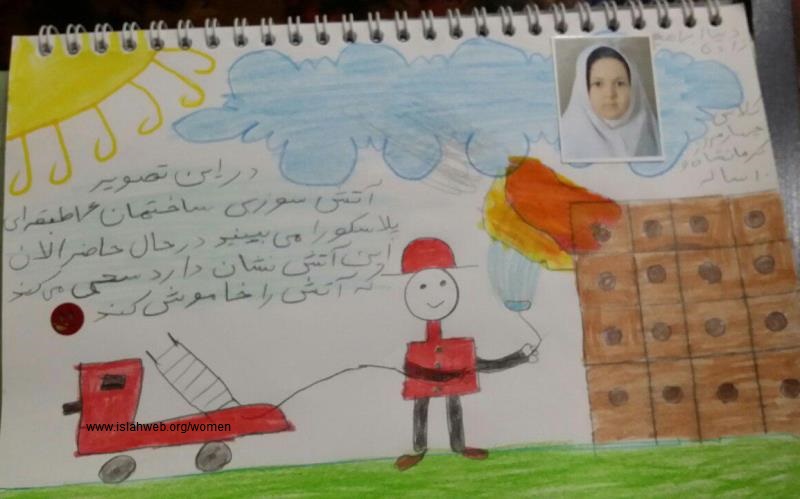 در این تصویر
آتش سوزی ساختمان ۱۶ طبقه‌ای
پلاسکو را می بینید در حال حاضر الان
این آتش نشان دارد سعی می کند
که آتش را خاموش کند
کلاس
چهارم از
کرمانشاه و
۱۰ ساله
www.islahweb.org/women